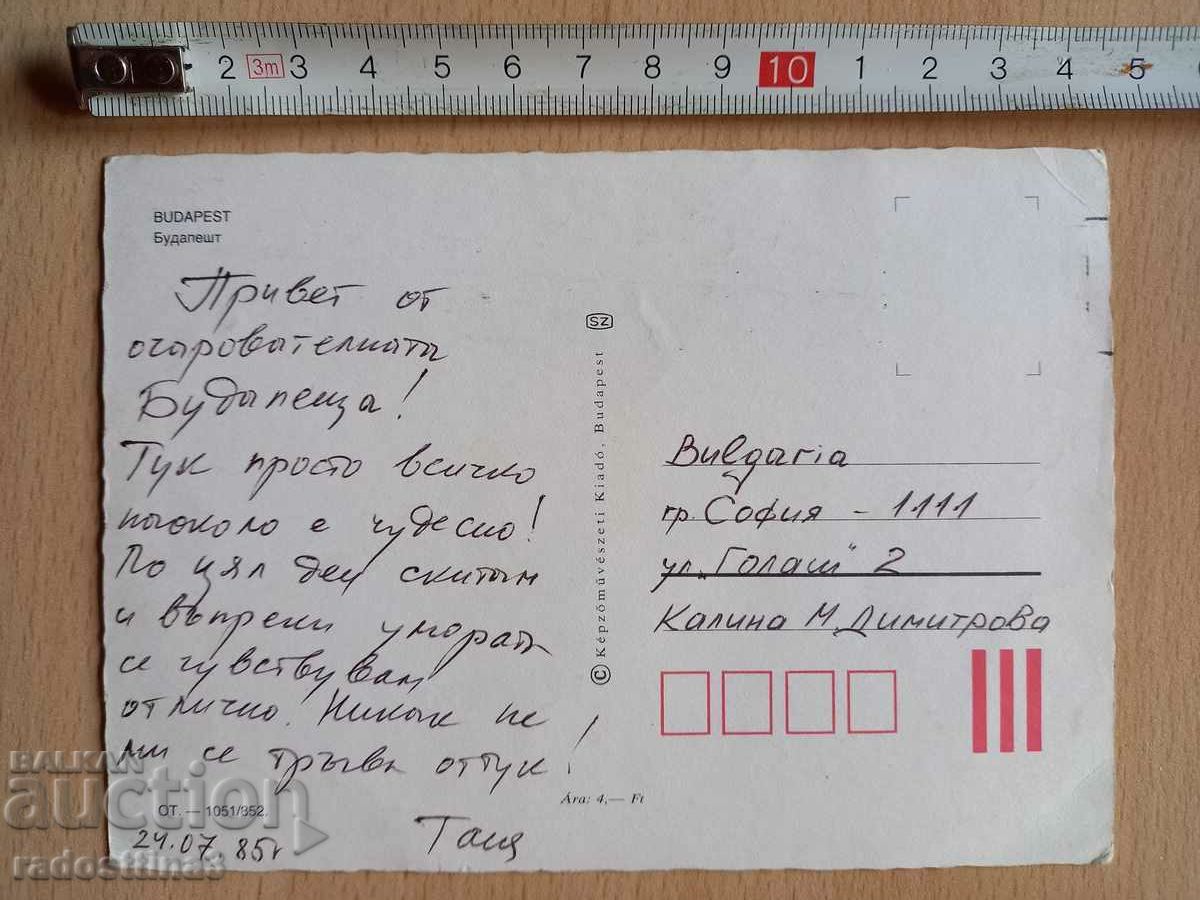 2 3m 3 4 5 6 7 8 9 10 1 2 3 4 5
BUDAPEST
Будапешт
Привет от
очарователната
Будапеща!
Тук просто всичко
наоколо е чудесно!
По цял ден скитам
и въпреки умората
се чувствувам
отлично. Никак не
ми се тръгва оттук!
Таня
24.07.85г
ОТ. — 1051/852.
SZ
© Képzőművészeti Kiadó, Budapest
Ára: 4,— Ft
Bulgaria
гр. София - 1111
ул. „Голаш" 2
Калина М. Димитрова
BALKAN
auction
radosttina3